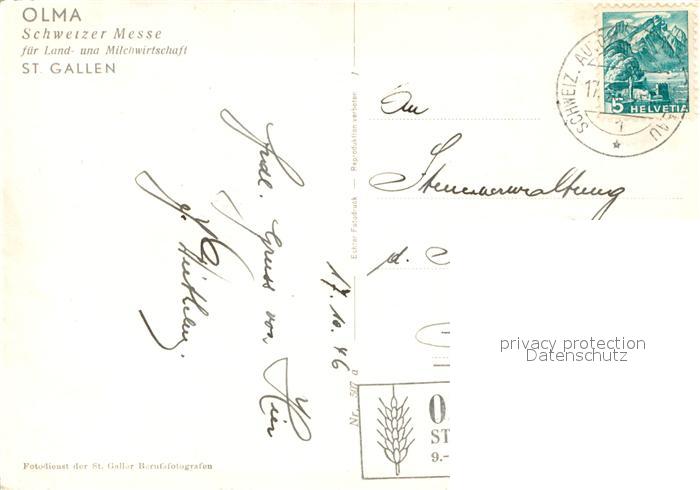 OLMA
Schweizer Messe
für Land- und Milchwirtschaft
ST. GALLEN
Frdl. Gruss von Hier
17. 10. 46
Echter Fotodruck — Reproduktion verboten
Nr. 507 a
An
Steuerverwaltung
d. S
SCHWEIZ. AU
17.
5
HELVETIA
privacy protection
Datenschutz
O
ST
9.-
Fotodienst der St. Galler Berufsfotografen